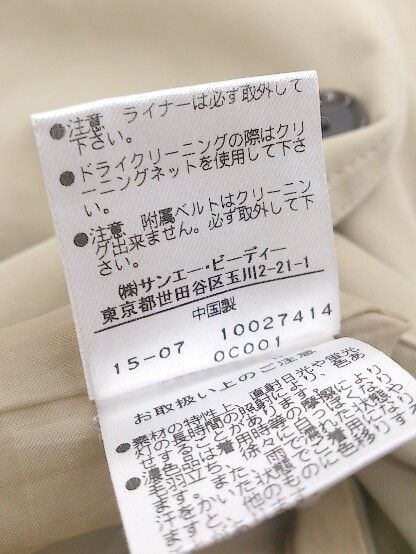 ●注意 ライナーは必ず取外して
下さい。
●ドライクリーニングの際はクリ
ーニングネットを使用して下さ
い。
●注意 附属ベルトはクリーニン
グ出来ません。必ず取外して下
さい。
㈱サンエー・ビーディー
東京都世田谷区玉川2-21-1
中国製
15-07 10027414
0C001
お取扱い上のご注意
●素材の特性上、直射日光や蛍光
灯の長時間の照射により、色あ
せすることがあります。
●濃色品は着用時等の摩擦により
毛羽立ち、徐々に白っぽくなり
ます。また、雨で濡れた状態や
汗をかいた状態で着用
すると、他のものに色移りす